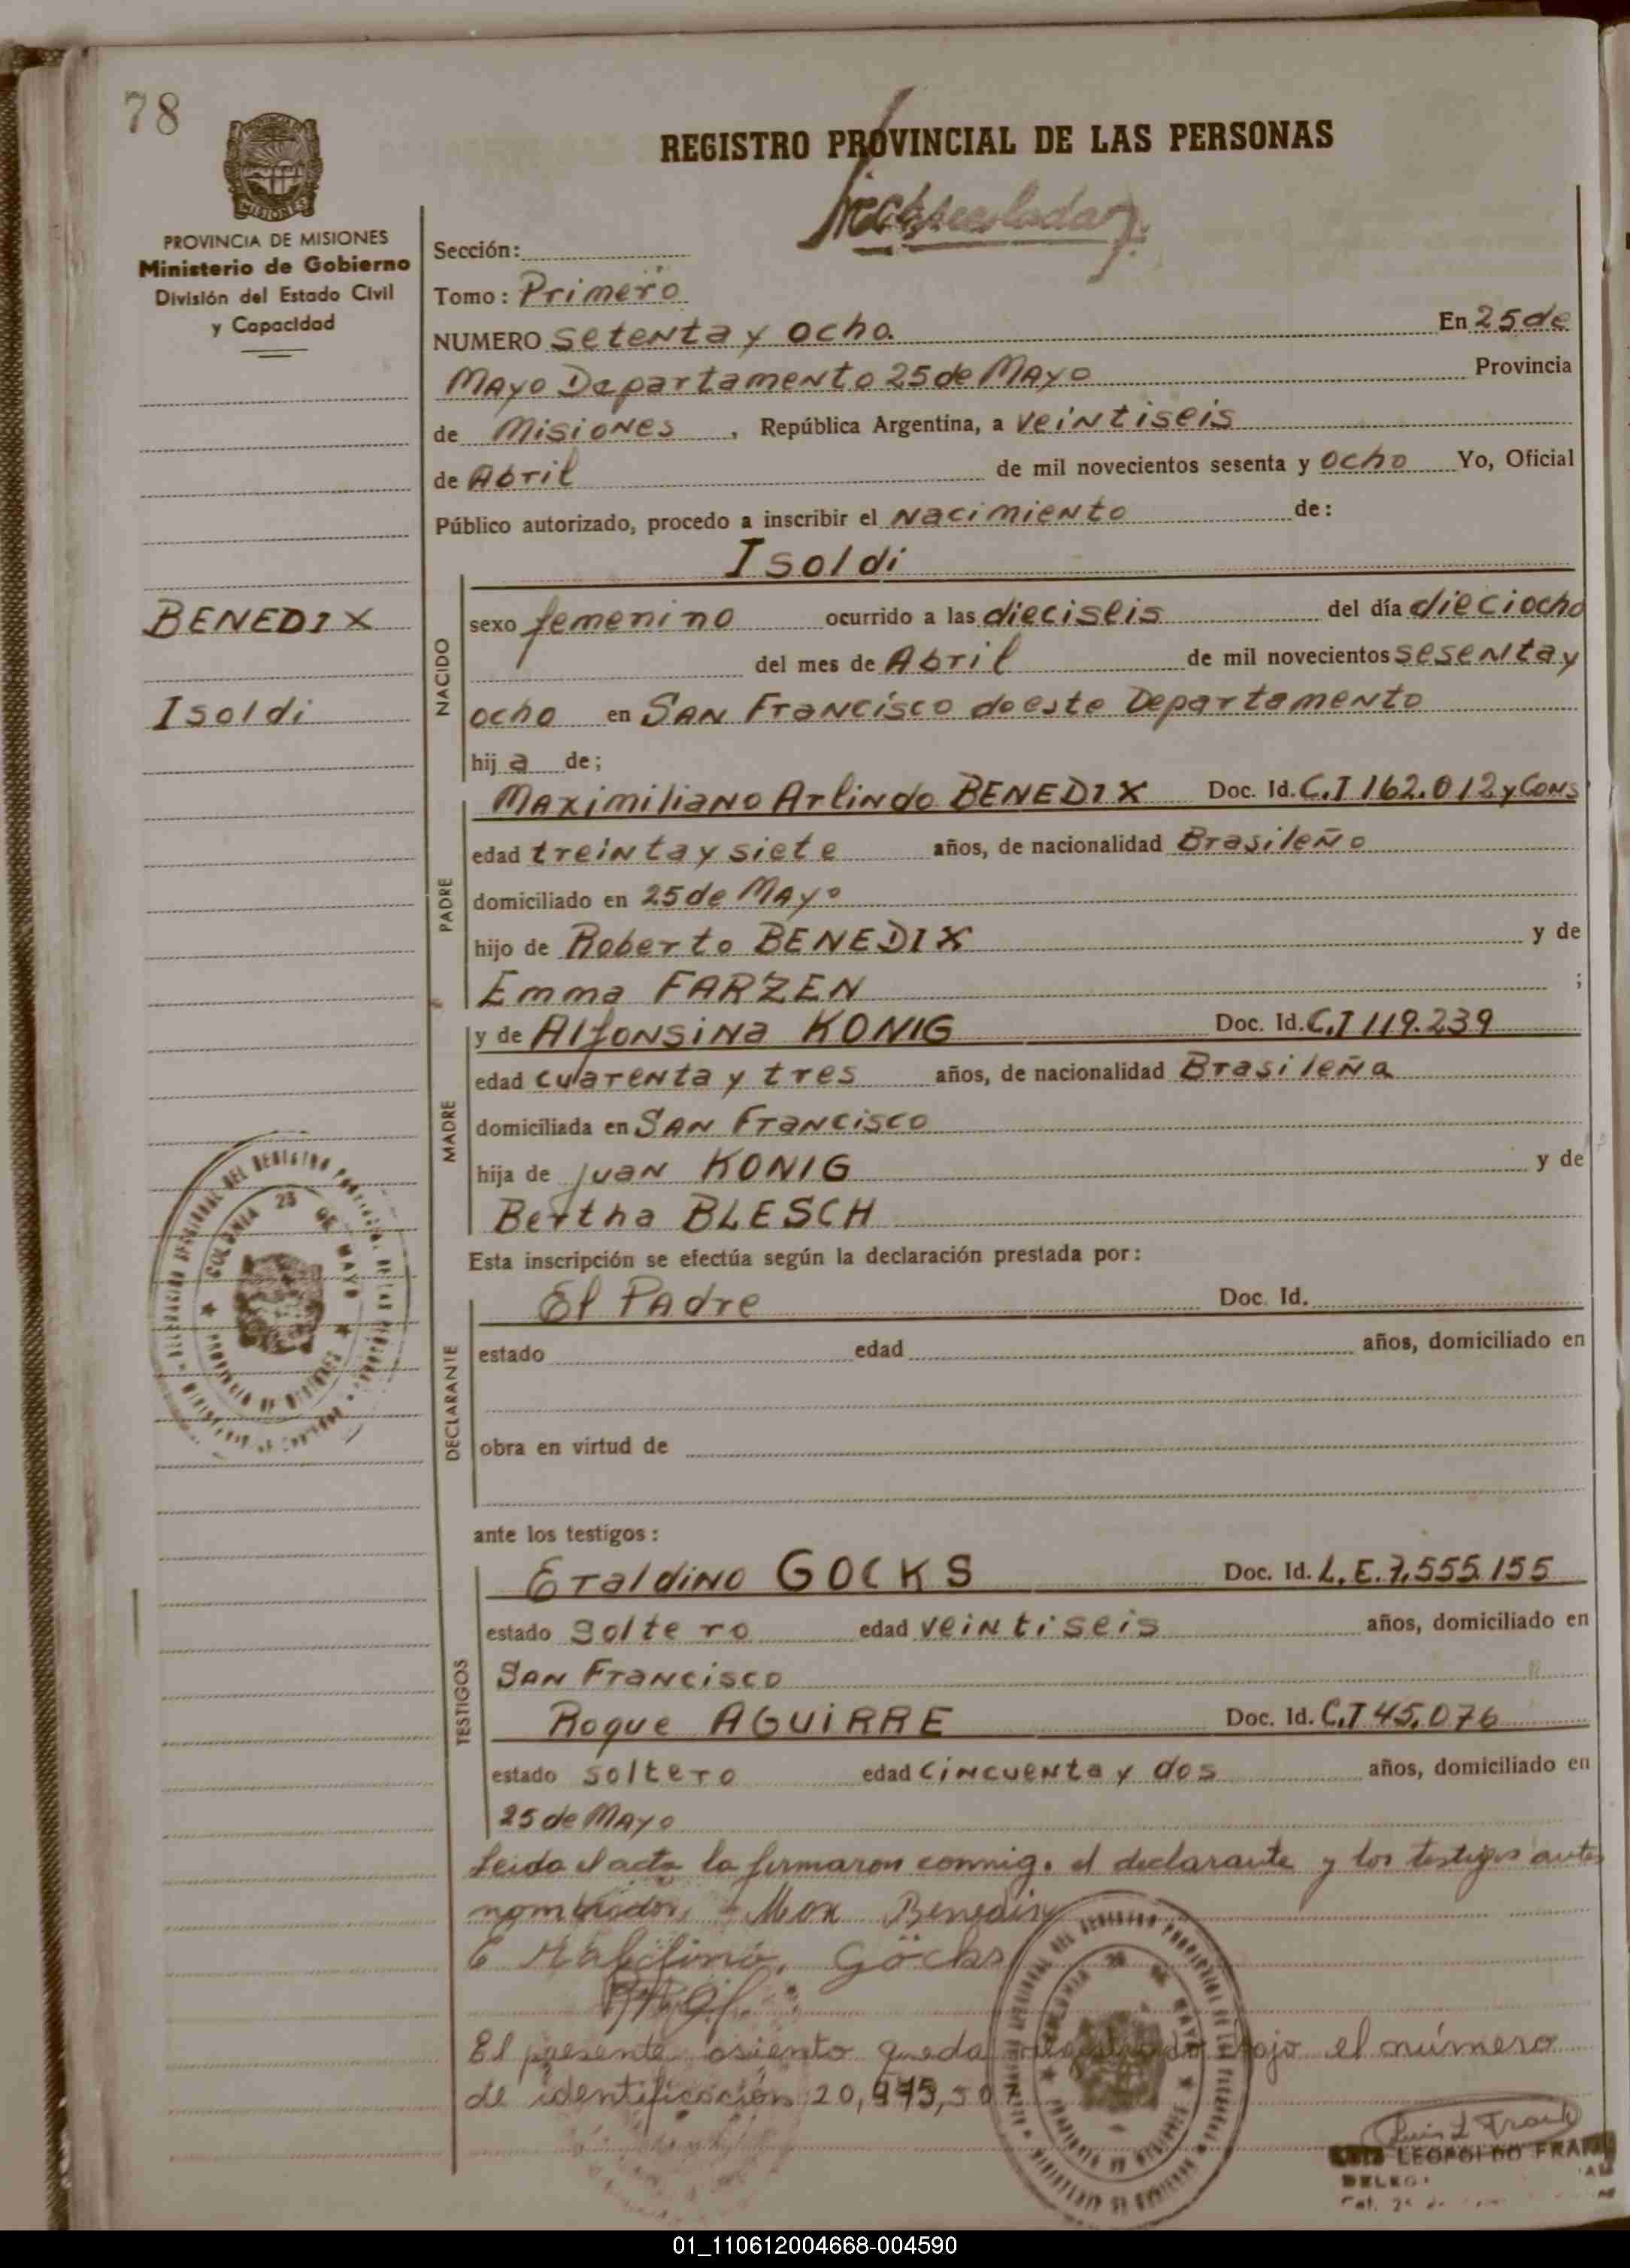 78
REGISTRO PROVINCIAL DE LAS PERSONAS
MISIONES
PROVINCIA DE MISIONES
Ministerio de Gobierno
División del Estado Civil
y Capacidad
Sección:
Tomo: Primero
NUMERO setenta y ocho. En 25 de
Mayo Departamento 25 de Mayo Provincia
de Misiones, República Argentina, a veintiseis
de Abril de mil novecientos sesenta y ocho Yo, Oficial
Público autorizado, procedo a inscribir el nacimiento de:
Isoldi
BENEDIX
Isoldi
NACIDO
sexo femenino ocurrido a las dieciseis del día dieciocho
del mes de Abril de mil novecientos sesenta y
ocho en San Francisco de este Departamento
hij a de;
PADRE
Maximiliano Arlindo BENEDIX Doc. Id. C.I 162.012 y Cons
edad treinta y siete años, de nacionalidad Brasileño
domiciliado en 25 de Mayo
hijo de Roberto BENEDIX y de
Emma FARZEN ;
MADRE
y de Alfonsina KONIG Doc. Id. C.I 119.239
edad cuarenta y tres años, de nacionalidad Brasileña
domiciliada en San Francisco
hija de Juan KONIG y de
Bertha BLESCH
Esta inscripción se efectúa según la declaración prestada por:
DECLARANTE
El Padre Doc. Id.
estado edad años, domiciliado en
obra en virtud de
ante los testigos:
TESTIGOS
Eraldino GOCKS Doc. Id. L.E. 7.555.155
estado soltero edad veintiseis años, domiciliado en
San Francisco
Roque AGUIRRE Doc. Id. C.I 45.076
estado soltero edad cincuenta y dos años, domiciliado en
25 de Mayo
Leida el acta la firmaron conmigo el declarante y los testigos antes
nombrados, Max Benedix
Göcks
El presente asiento queda bajo el número
de identificación 20,
COLONIA 25 DE MAYO
PROVINCIA DE MISIONES
Luis L Frank
LEOPOLDO FRANK
01_110612004668-004590